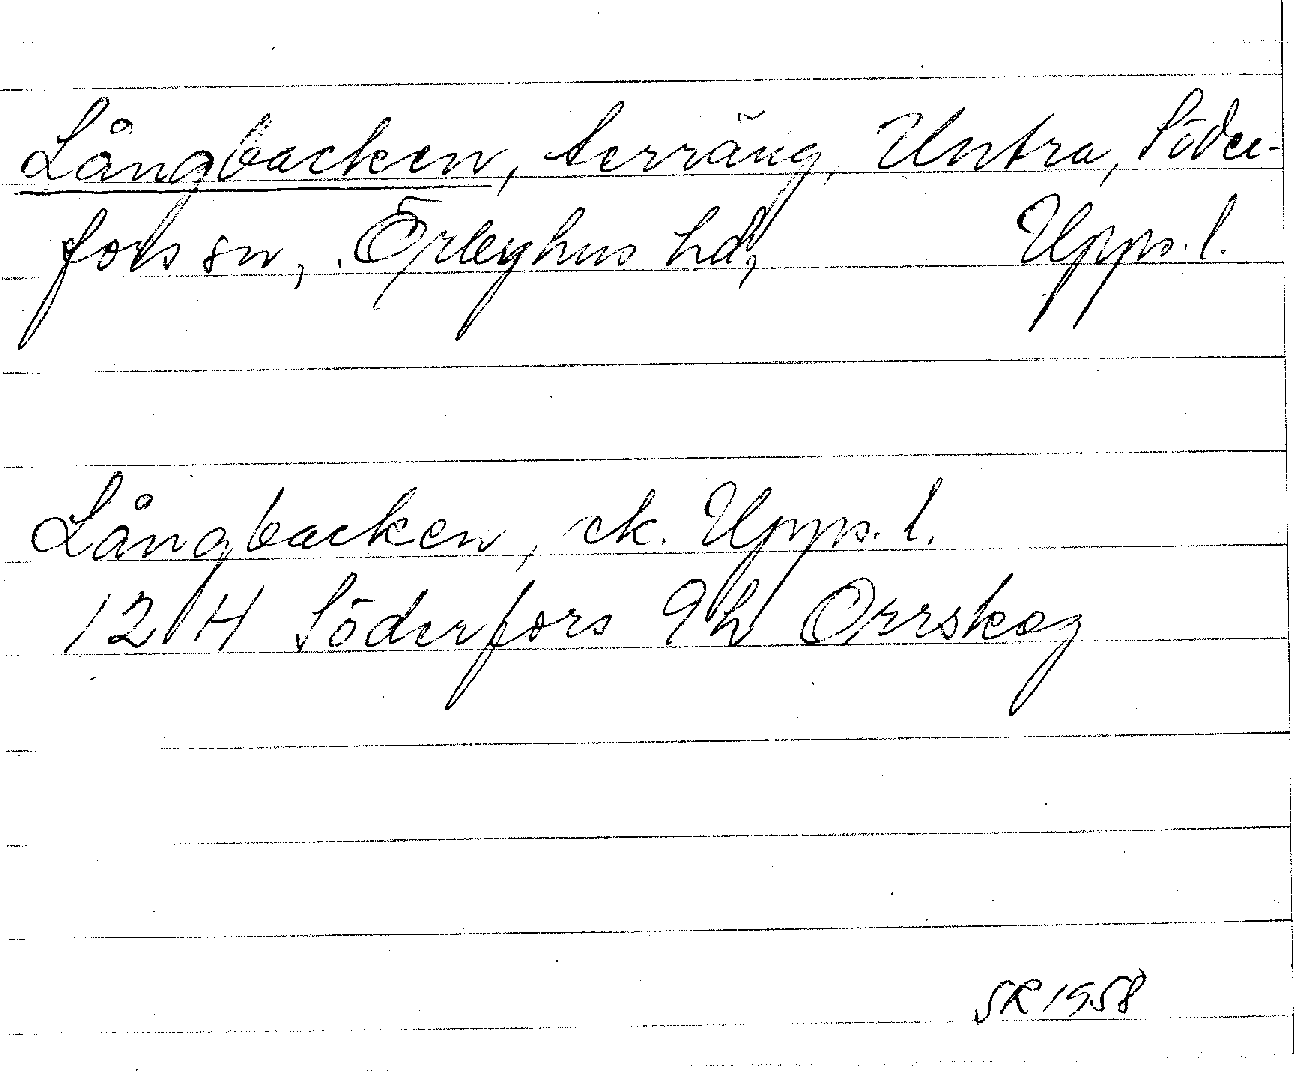 Långbacken, terräng, Untra, Söder-
fors sn, Örbyhus hd, Upps. l.
Långbacken, ek. Upps. l.
12 H Söderfors 9h Orrskog
SR 1958